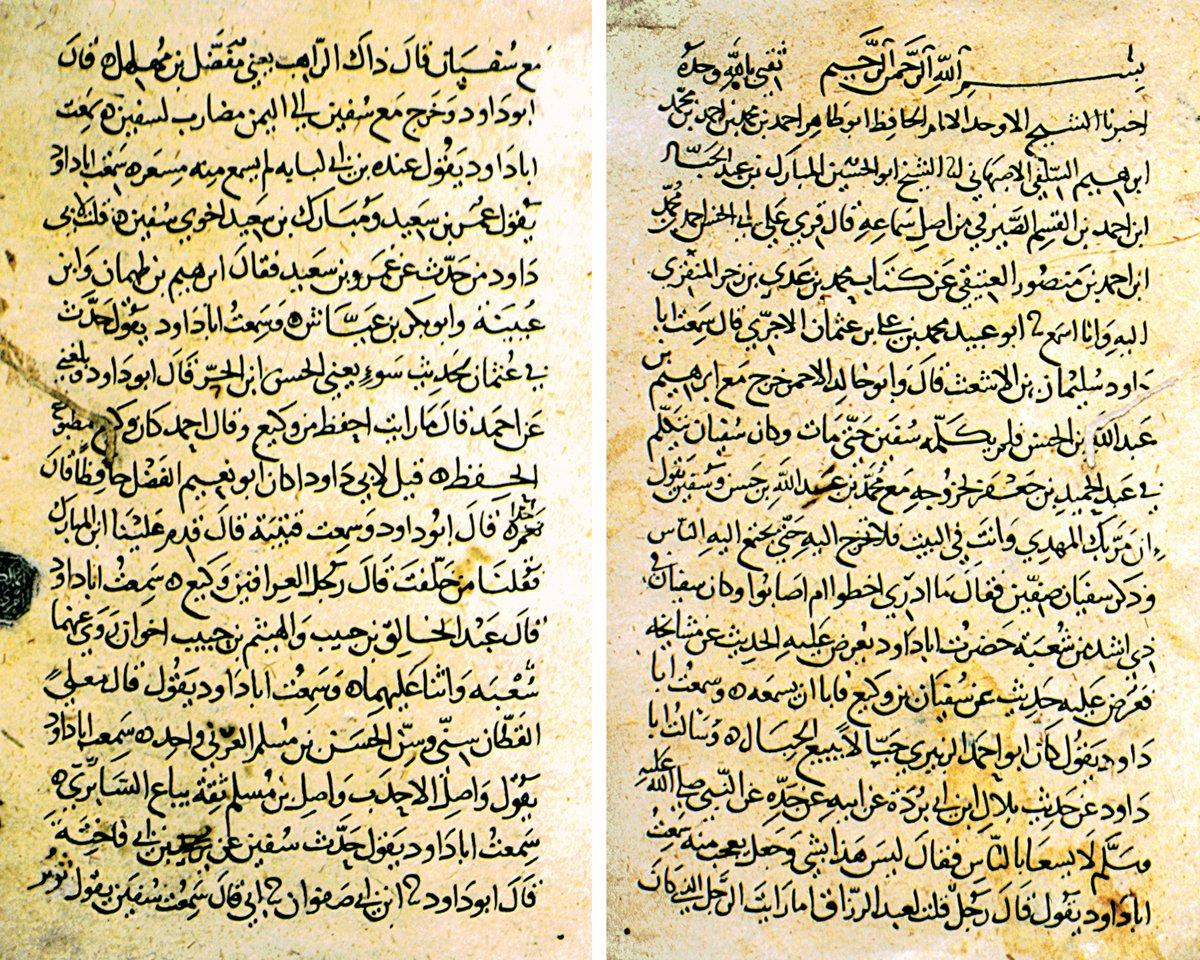 بسم الله الرحمن الرحيم ثقتي بالله وحده
اخبرنا الشيخ الاوحد الامام الحافظ ابو طاهر احمد بن محمد بن احمد بن محمد
ابرهيم السلفي الاصبهاني انا الشيخ ابو الحسين المبارك بن عبد الجبار
ابن احمد بن القسم الصيرفي من اصل سماعه قال قرئ علي ابي الحسن احمد بن محمد
ابن احمد بن منصور العتيقي عن كتاب محمد بن عدي بن زحر المنقري
اليه وانا اسمع نا ابو عبيد محمد بن علي بن عثمان الاجري قال سمعت ابا
داود سليمان بن الاشعث قال وابو خالد الاحمر خرج مع ابرهيم بن
عبد الله بن الحسن فلم يكلمه سفين حتى مات وكان سفيان يتكلم
في عبد الحميد بن جعفر لخروجه مع محمد بن عبد الله بن حسن وسفين يقول
ان مر بك المهدي وانت في البيت فلا تخرج اليه حتى يجتمع اليه الناس
وذكر سفيان صفين فقال ما ادري اخطوا ام اصابوا وكان سفيان في
ذي اشد من شعبة حضرت ابا داود يعرض عليه الحديث عن مشايخه
فعرض عليه حديث عن سفيان بن وكيع فابا ان يسمعه وسمعت ابا
داود يقول كان ابو احمد الزبيري حبالا يبيع الحبال وسالت ابا
داود عن حديث بلال ابن ابي بردة عن ابيه عن جده عن النبي صلى الله عليه
وسلم لا يسعا بالناس فقال ليس هذا بشي وجعل يعجب منه سمعت
ابا داود يقول قال رجل قلت لعبد الرزاق اما رايت الرجل الذي كان
مع سفيان قال ذاك الراهب يعني مفضل بن مهلهل قال
ابو داود وخرج مع سفين الى اليمن مضارب لسفين سمعت
ابا داود يقول عنده بن ابي لبابه لم يسمع منه مسعر سمعت ابا داود
يقول عمر بن سعيد ومبارك بن سعيد اخوي سفين قلت لابي
داود من حدث عن عمرو بن سعيد فقال ابرهيم بن طهمان وابن
عيينة وابو بكر بن عياش وسمعت ابا داود يقول حدث
في عثمان بحديث سوء يعني الحسن ابن الحر قال ابو داود بلغني
عن احمد قال ما رايت احفظ من وكيع وقال احمد كان وكيع مطبوع
الحفظ قيل لابي داود اكان ابو نعيم الفضل حافظا قال
نعم جدا قال ابو داود وسمعت قتيبة قال قدم علينا ابن المبارك
فقلنا من خلفت قال رجل العراقين وكيع سمعت ابا داود
قال عبد الخالق بن حبيب والهيثم بن حبيب اخوان روى عنهما
شعبه واثنا عليهما وسمعت ابا داود يقول قال معلي
القطان سنى وسن الحسن بن مسلم العرني واحد سمعت ابا داود
يقول واصل الاحدب واصل بن مسلم ثقة بياع السابري
سمعت ابا داود يقول حدث سفين عن بن ابي فاختة
قال ابو داود نا ابن ابي صفوان نا ابي قال سمعت سفين يقول ثوير